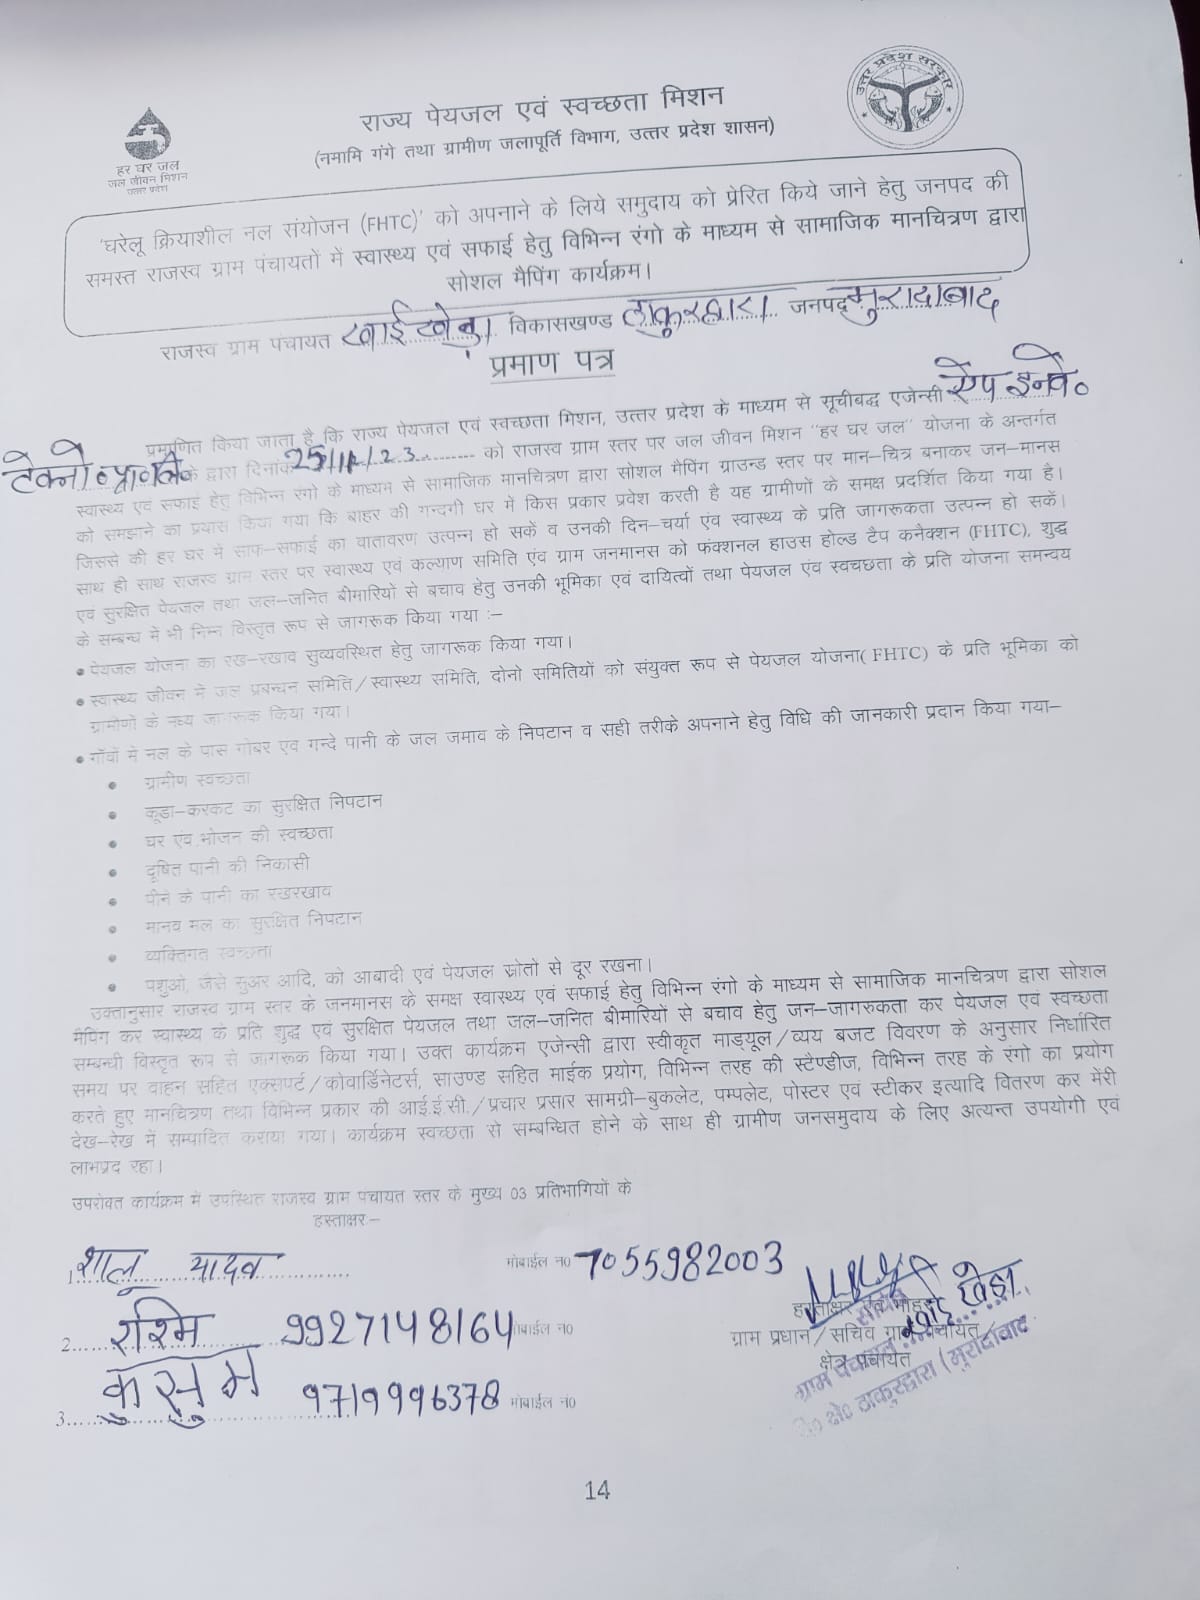 उत्तर प्रदेश सरकार
राज्य पेयजल एवं स्वच्छता मिशन
(नमामि गंगे तथा ग्रामीण जलापूर्ति विभाग, उत्तर प्रदेश शासन)
हर घर जल
जल जीवन मिशन
उत्तर प्रदेश
'घरेलू क्रियाशील नल संयोजन (FHTC)' को अपनाने के लिये समुदाय को प्रेरित किये जाने हेतु जनपद की
समस्त राजस्व ग्राम पंचायतों में स्वास्थ्य एवं सफाई हेतु विभिन्न रंगो के माध्यम से सामाजिक मानचित्रण द्वारा
सोशल मैपिंग कार्यक्रम।
राजस्व ग्राम पंचायत खाई खेड़ा विकासखण्ड ठाकुरद्वारा जनपद मुरादाबाद
प्रमाण पत्र
प्रमाणित किया जाता है कि राज्य पेयजल एवं स्वच्छता मिशन, उत्तर प्रदेश के माध्यम से सूचीबद्ध एजेन्सी ऐप इनवे०
टेक्नो० प्रा० लि० के द्वारा दिनांक 25/11/23 को राजस्व ग्राम स्तर पर जल जीवन मिशन "हर घर जल" योजना के अन्तर्गत
स्वास्थ्य एवं सफाई हेतु विभिन्न रंगो के माध्यम से सामाजिक मानचित्रण द्वारा सोशल मैपिंग ग्राउन्ड स्तर पर मान-चित्र बनाकर जन-मानस
को समझाने का प्रयास किया गया कि बाहर की गन्दगी घर में किस प्रकार प्रवेश करती है यह ग्रामीणों के समक्ष प्रदर्शित किया गया है।
जिससे की हर घर में साफ-सफाई का वातावरण उत्पन्न हो सकें व उनकी दिन-चर्या एंव स्वास्थ्य के प्रति जागरूकता उत्पन्न हो सकें।
साथ ही साथ राजस्व ग्राम स्तर पर स्वास्थ्य एवं कल्याण समिति एंव ग्राम जनमानस को फंक्शनल हाउस होल्ड टैप कनैक्शन (FHTC), शुद्ध
एवं सुरक्षित पेयजल तथा जल-जनित बीमारियों से बचाव हेतु उनकी भूमिका एवं दायित्वों तथा पेयजल एंव स्वच्छता के प्रति योजना समन्वय
के सम्बन्ध में भी निम्न विस्तृत रूप से जागरूक किया गया :-
• पेयजल योजना का रख-रखाव सुव्यवस्थित हेतु जागरूक किया गया।
• स्वास्थ्य जीवन में जल प्रबन्धन समिति/स्वास्थ्य समिति, दोनो समितियों को संयुक्त रूप से पेयजल योजना( FHTC) के प्रति भूमिका को
ग्रामीणों के मध्य जागरूक किया गया।
• गाँवों में नल के पास गोबर एंव गन्दे पानी के जल जमाव के निपटान व सही तरीके अपनाने हेतु विधि की जानकारी प्रदान किया गया-
• ग्रामीण स्वच्छता
• कूडा-करकट का सुरक्षित निपटान
• घर एंव भोजन की स्वच्छता
• दूषित पानी की निकासी
• पीने के पानी का रखरखाव
• मानव मल का सुरक्षित निपटान
• व्यक्तिगत स्वच्छता
• पशुओ, जैसे सुअर आदि, को आबादी एवं पेयजल स्रोतो से दूर रखना।
उक्तानुसार राजस्व ग्राम स्तर के जनमानस के समक्ष स्वास्थ्य एवं सफाई हेतु विभिन्न रंगो के माध्यम से सामाजिक मानचित्रण द्वारा सोशल
मैपिंग कर स्वास्थ्य के प्रति शुद्ध एवं सुरक्षित पेयजल तथा जल-जनित बीमारियों से बचाव हेतु जन-जागरुकता कर पेयजल एवं स्वच्छता
सम्बन्धी विस्तृत रूप से जागरूक किया गया। उक्त कार्यक्रम एजेन्सी द्वारा स्वीकृत माड्यूल/व्यय बजट विवरण के अनुसार निर्धारित
समय पर वाहन सहित एक्सपर्ट/कोवार्डिनेटर्स, साउण्ड सहित माईक प्रयोग, विभिन्न तरह की स्टैण्डीज, विभिन्न तरह के रंगो का प्रयोग
करते हुए मानचित्रण तथा विभिन्न प्रकार की आई.ई.सी./प्रचार प्रसार सामग्री-बुकलेट, पम्पलेट, पोस्टर एवं स्टीकर इत्यादि वितरण कर मेंरी
देख-रेख में सम्पादित कराया गया। कार्यक्रम स्वच्छता से सम्बन्धित होने के साथ ही ग्रामीण जनसमुदाय के लिए अत्यन्त उपयोगी एवं
लाभप्रद रहा।
उपरोक्त कार्यक्रम में उपस्थित राजस्व ग्राम पंचायत स्तर के मुख्य 03 प्रतिभागियों के
हस्ताक्षर:-
1. शालू यादव मोबाईल न0 7055982003
2. रश्मि 9927148164 मोबाईल न0
3. कुसुम 9719996378 मोबाईल नं0
हस्ताक्षर एवं मोहर
ग्राम प्रधान/सचिव ग्राम पंचायत/
क्षेत्र पंचायत
सचिव
ग्राम पंचायत खाई खेड़ा
वि० क्षे० ठाकुरद्वारा (मुरादाबाद
14